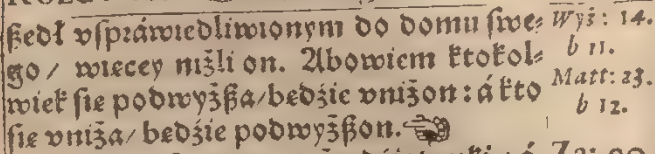 ßedł vſpráwiedliwionym do domu ſwe⸗
go/ wiecey niżli on. Abowiem ktokol⸗
wiek ſie podwyżßa/bedźie vniżon: á kto
ſie vniża/ bedźie podwyżßon.
Wyż: 14.
b 11.
Matt: 23.
b 12.